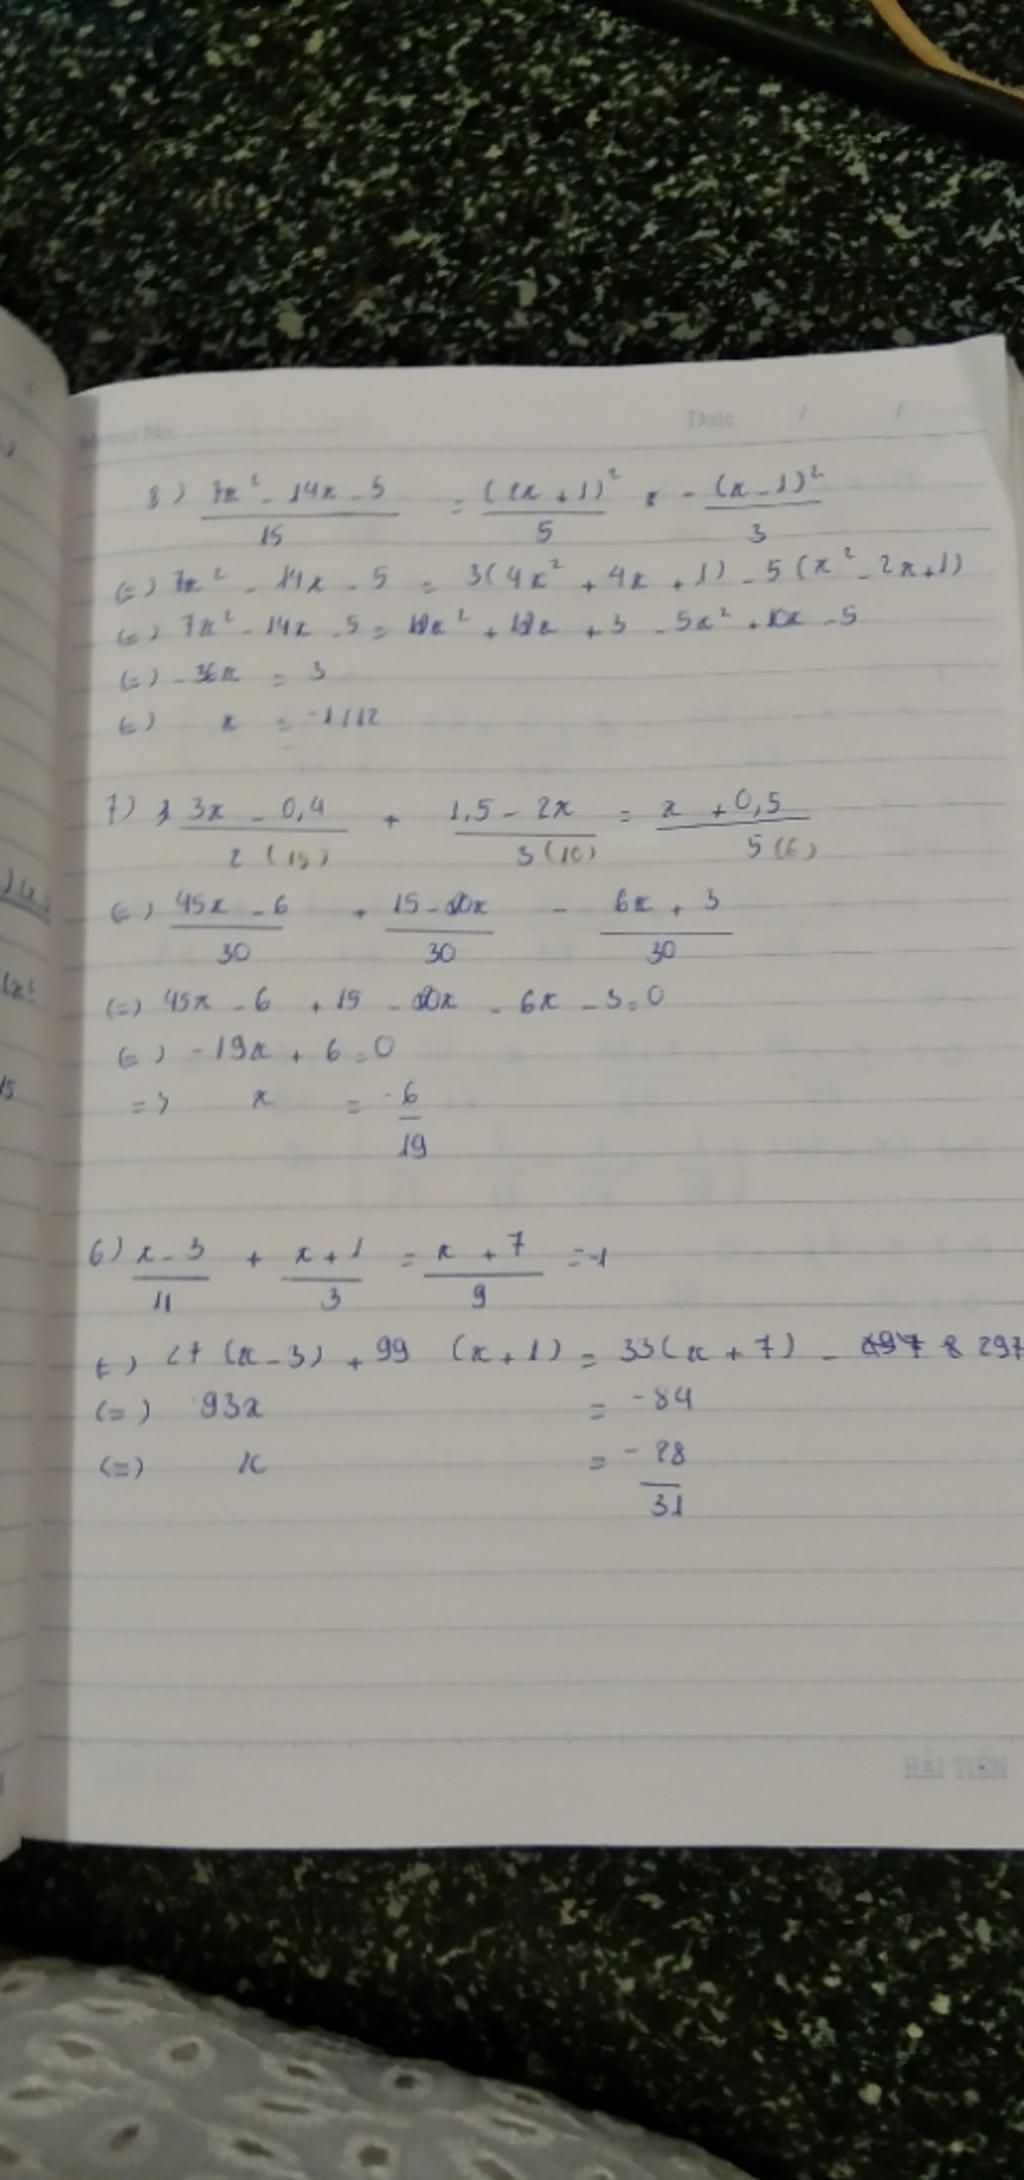 Date / /
8) 7x² - 14x - 5 / 15 = (2x + 1)² / 5 - (x - 1)² / 3
(=) 7x² - 14x - 5 = 3(4x² + 4x + 1) - 5(x² - 2x+1)
(=) 7x² - 14x - 5 = 12x² + 12x + 3 - 5x² + 10x - 5
(=) - 36x = 3
(=) x = -1/12
7) 3x - 0,4 / 2 (15) + 1,5 - 2x / 3 (10) = x + 0,5 / 5 (6)
(=) 45x - 6 / 30 + 15 - 20x / 30 - 6x + 3 / 30
(=) 45x - 6 + 15 - 20x - 6x - 3 = 0
(=) - 19x + 6 = 0
=> x = -6 / 19
6) x - 3 / 11 + x + 1 / 3 = x + 7 / 9 = -1
(=) 27 (x - 3) + 99 (x + 1) = 33(x + 7) - 297
(=) 93x = -84
(=) x = -28 / 31
HẢI TIẾN